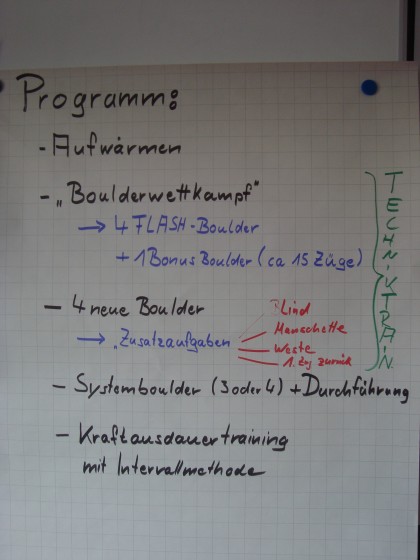 Programm:
- Aufwärmen
- „Boulderwettkampf"
→ 4 FLASH-Boulder
+ 1 Bonus Boulder (ca 15 Züge)
- 4 neue Boulder
→ „Zusatzaufgaben
Blind
Manschette
Weste
1. Zug zurück
- Systemboulder (3 oder 4) + Durchführung
- Kraftausdauertraining
mit Intervallmethode
TECHNIKTRAIN